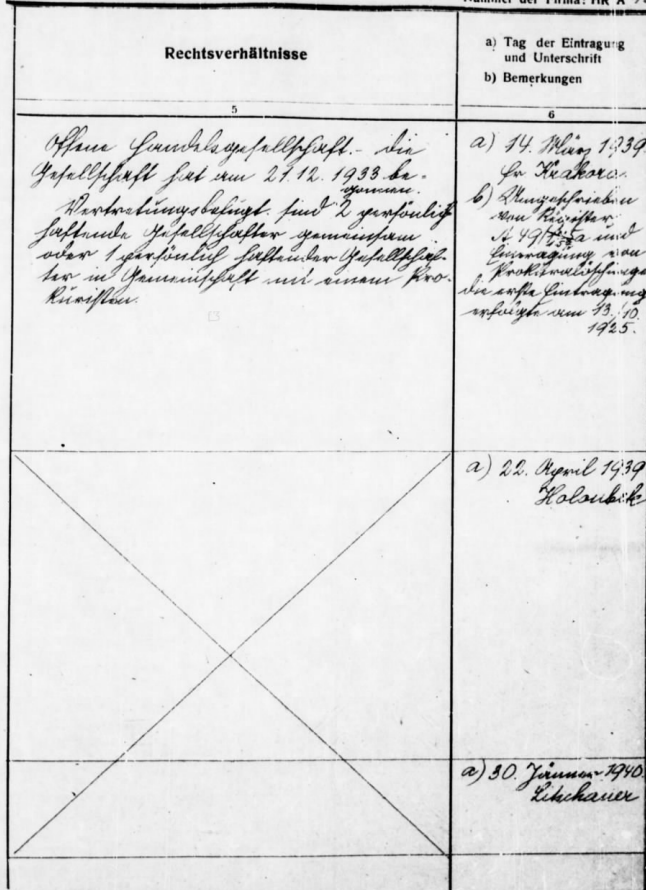 Nummer der Firma: HR A
Rechtsverhältnisse
a) Tag der Eintragung
und Unterschrift
b) Bemerkungen
5
6
Offene Handelsgesellschaft. - Die
Gesellschaft hat am 21.12.1933 be-
gonnen.
Vertretungsbefugt sind 2 persönlich
haftende Gesellschafter gemeinsam
oder 1 persönlich haftender Gesellschaf-
ter in Gemeinschaft mit einem Pro-
kuristen.
a) 14. März 1939
Krakora
b) Umgeschrieben
von Register
A 49/ a und
Eintragung von
die erste Eintragung
erfolgte am 13./10.
1925.
a) 22. April 1939
Holoubek
a) 30. Jänner 1940.
Litschauer